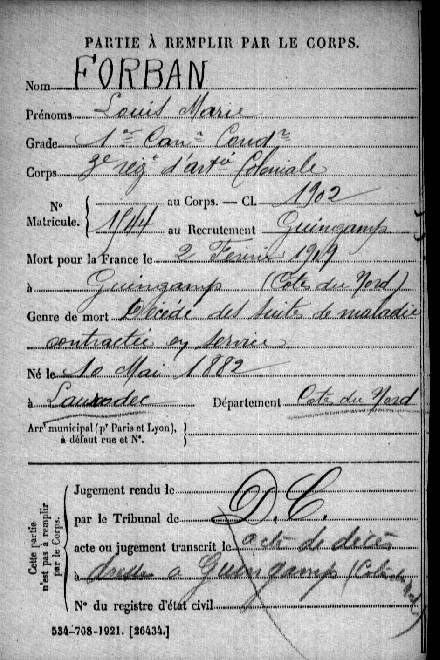 PARTIE À REMPLIR PAR LE CORPS.
Nom FORBAN
Prénoms Louis Marie
Grade 1er Can. Condr
Corps 3e régt d'artie Coloniale
N° Matricule. { au Corps. — Cl. 1902
1744 au Recrutement Guingamp
Mort pour la France le 2 Février 1919
à Guingamp (Cotes du Nord)
Genre de mort Décédé des suites de maladie
contractée en service
Né le 10 Mai 1882
à Département Cotes du Nord
Arrt municipal (pr Paris et Lyon),
à défaut rue et N°.
Cette partie n'est pas à remplir par le Corps.
Jugement rendu le
par le Tribunal de D.C.
acte ou jugement transcrit le acte de décès
à dressé à Guingamp (Cotes du Nord)
N° du registre d'état civil
534-708-1921. [26434.]